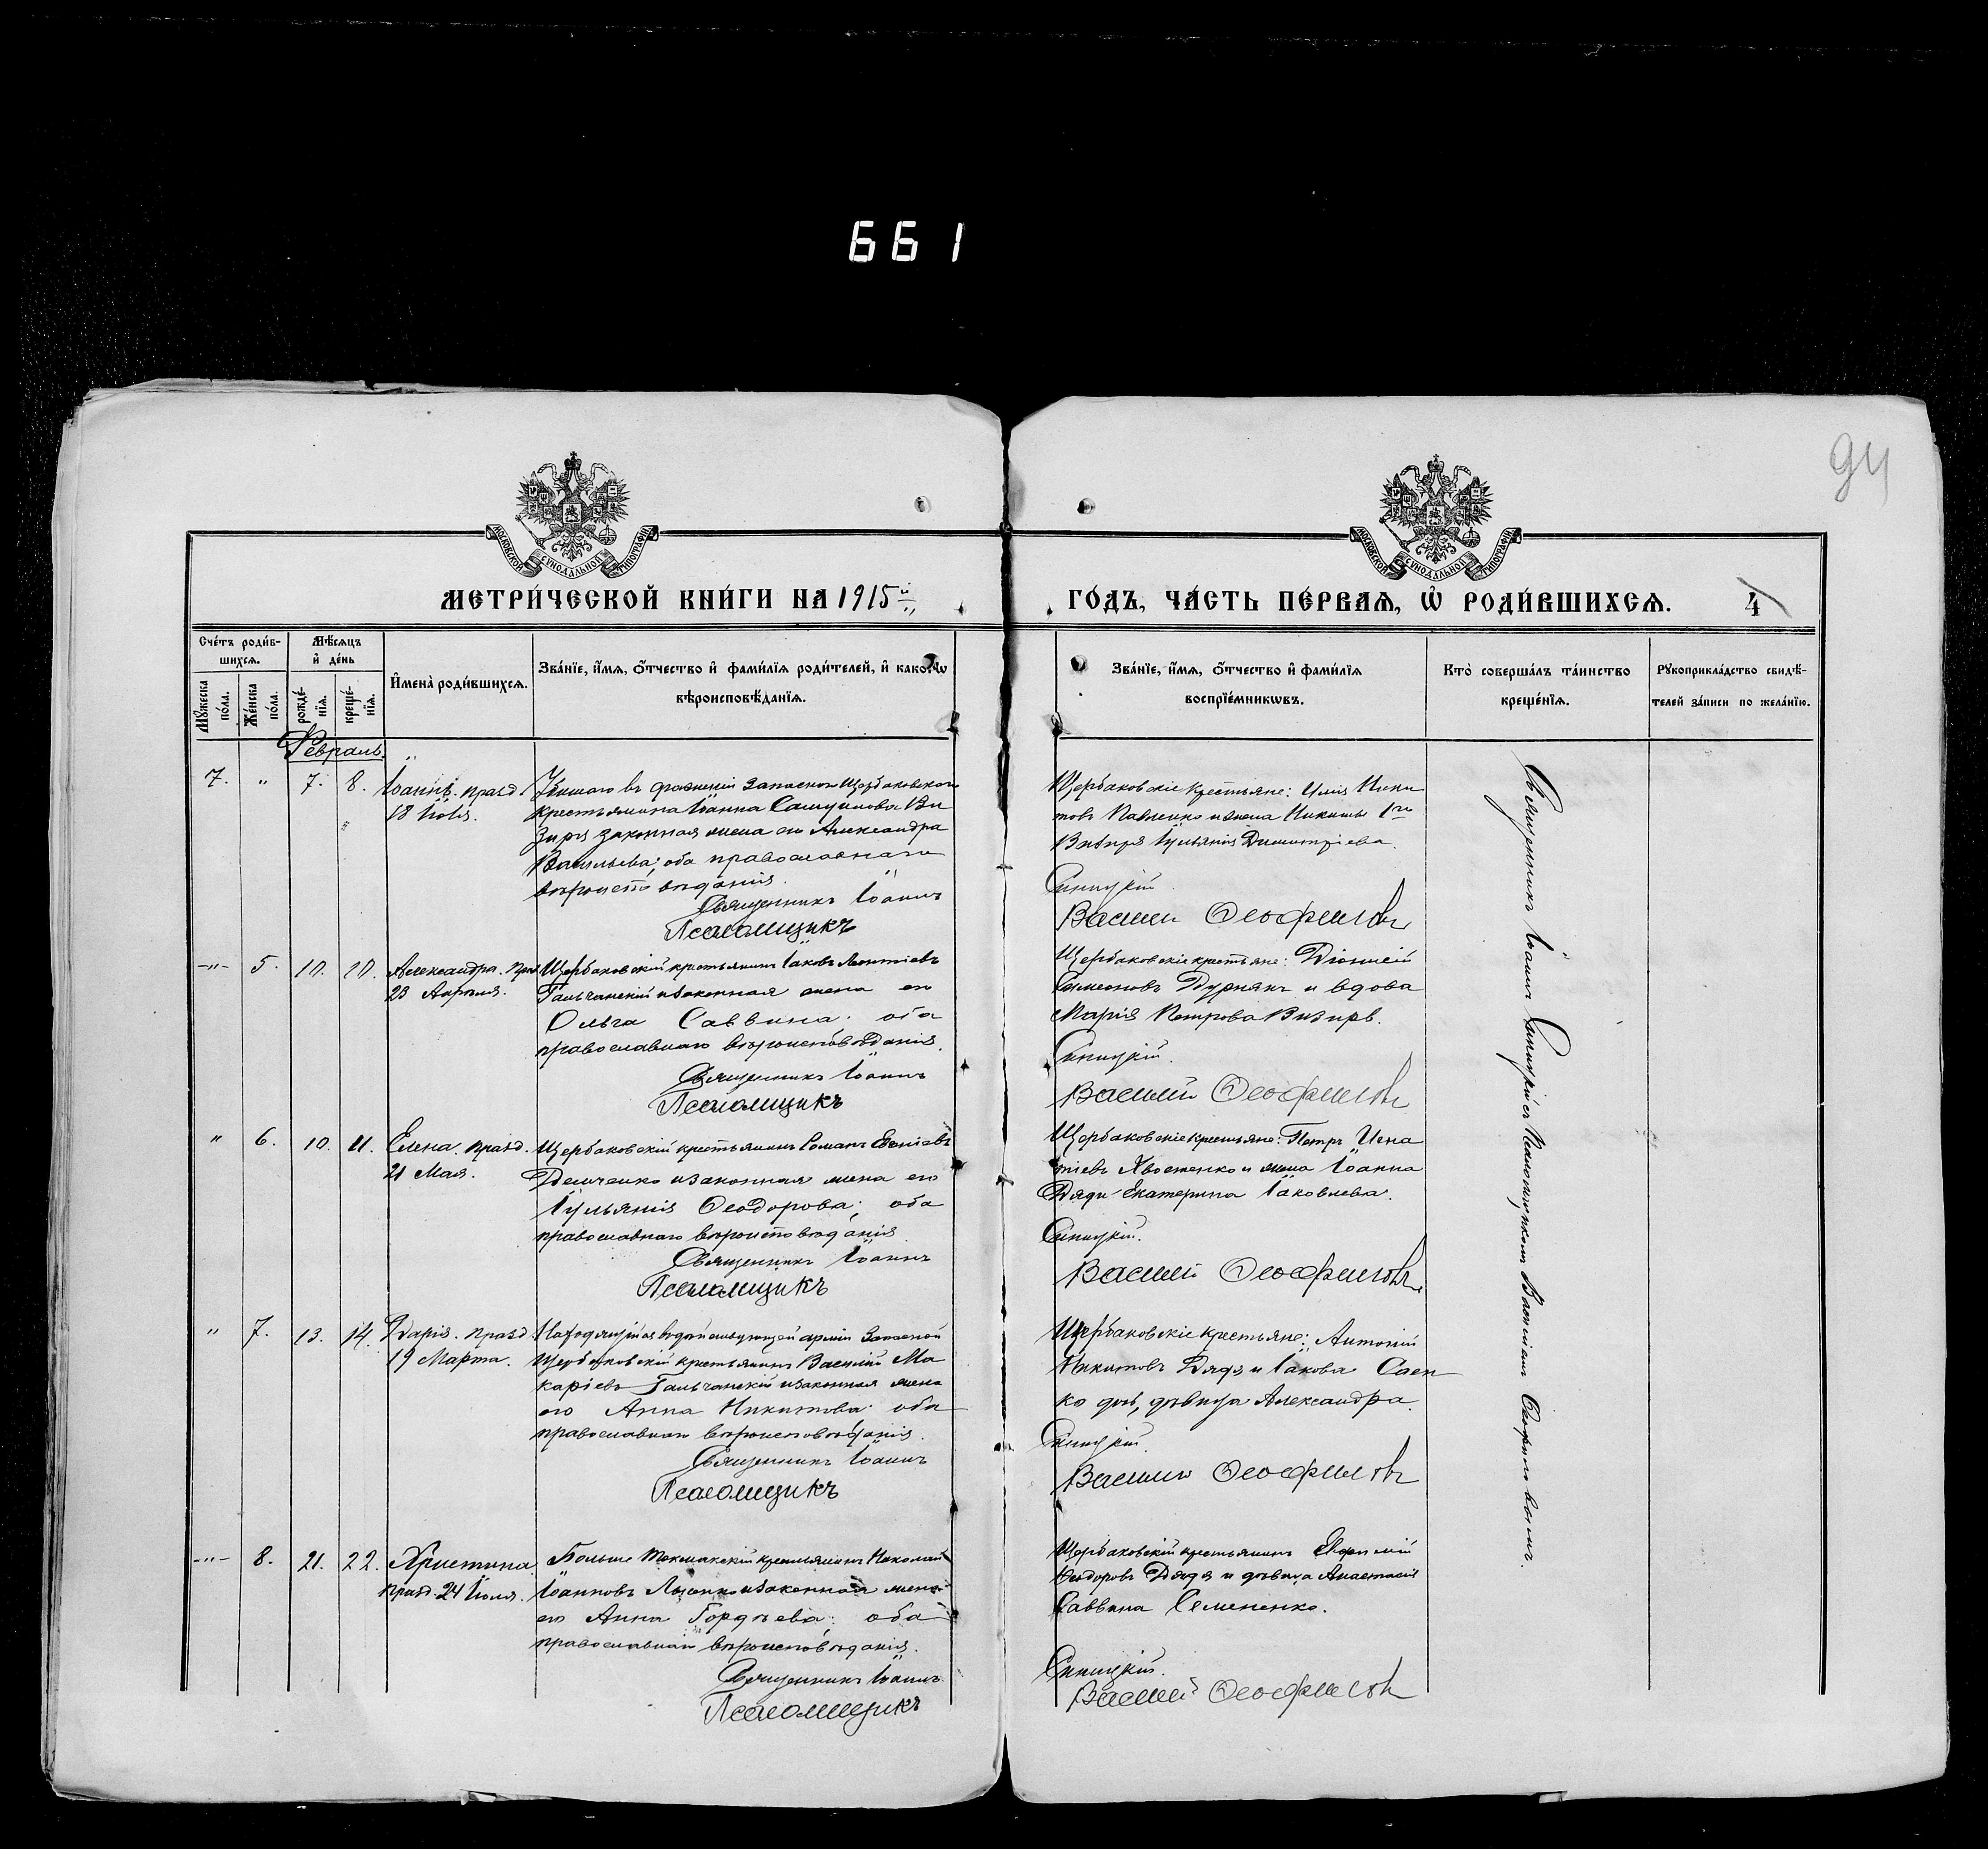 661
94
МОСКОВСКОЙ СУНОДАЛЬНОЙ ТИПОГРАФІИ
МОСКОВСКОЙ СУНОДАЛЬНОЙ ТИПОГРАФІИ
МЕТРИ́ЧЕСКОЙ КНИ́ГИ НА 1915й
ГО́ДЪ, ЧА́СТЬ ПЕ́РВАѦ, Ѡ҆ РОДИ́ВШИХСѦ. 4
Сче́тъ роди́в-
шихсѧ.
Мѣ́сѧцъ
и҆ де́нь
Мꙋ́жеска
по́ла.
Же́нска
по́ла.
рожде́-
нїѧ.
креще́-
нїѧ.
И҆мена̀ роди́вшихсѧ.
Зва́нїе, и҆́мѧ, о҆́тчество и҆ фами́лїѧ роди́телей, и҆ како́гѡ
вѣроисповѣ́данїѧ.
Зва́нїе, и҆́мѧ, о҆́тчество и҆ фами́лїѧ
воспрїе́мникѡвъ.
Кто̀ соверша́лъ та́инство
креще́нїѧ.
Рꙋкоприкла́дство свидѣ́-
телей за́писи по жела́нїю.
Февраль.
7. " 7. 8. Іоаннъ. празд.
18 Іюля.
въ сраженіи Запаснаго Щербаковскаго
крестьянина Іоанна Ви
зиря законная жена его Александра
Васильева; оба православнаго
вѣроисповѣданія.
Священникъ Іоаннъ
Псаломщикъ
Щербаковскіе крестьяне: Илія Ники
товъ Павленко и жена Никиты 1го
Визиря Іуліанія Димитріева.
Синицкій.
Василій Ѳеофиловъ
-"- 5. 10. 10. Александра. праз
23 Апрѣля.
Щербаковскій крестьянинъ Іаковъ Леонтіевъ
Гальчанскій и законная жена его
Ольга Саввина; оба
православнаго вѣроисповѣданія.
Священникъ Іоаннъ
Псаломщикъ
Щербаковскіе крестьяне: Діонисій
Симеоновъ Дурнякъ и вдова
Марія Петрова Визирь.
Синицкій.
Василій Ѳеофиловъ
" 6. 10. 11. Елена. празд.
21 Мая.
Щербаковскій крестьянинъ Романъ
Демченко и законная жена его
Іуліанія Ѳеодорова; оба
православнаго вѣроисповѣданія
Священникъ Іоаннъ
Псаломщикъ
Щербаковскіе крестьяне: Петръ Игна
тіевъ Хвостенко и жена Іоанна
Дяди Екатерина Іаковлева.
Синицкій.
Василій Ѳеофиловъ
" 7. 13. 14. Дарія. празд.
19 Марта.
Находящійся въ дѣйствующей арміи Запасной
Щербаковскій крестьянинъ Василій Ма
каріевъ Гальчанскій и законная жена
его Анна Никитова; оба
православнаго вѣроисповѣданія.
Священникъ Іоаннъ
Псаломщикъ
Щербаковскіе крестьяне: Антоній
Никитовъ Дядя и Іакова Саен
ко дочь, дѣвица Александра.
Синицкій.
Василій Ѳеофиловъ
-"- 8. 21. 22. Христина.
празд. 24 Іюля.
Больше Токмакскій крестьянинъ Николай
Іоанновъ Лысенко и законная жена
его Анна Гордѣева; оба
православнаго вѣроисповѣданія.
Священникъ Іоаннъ
Псаломщикъ
Щербаковскій крестьянинъ Евфимій
Ѳеодоровъ Дядя и дѣвица Анастасія
Саввина Семененко.
Синицкій.
Василій Ѳеофиловъ
Священникъ Іоаннъ Синицкій съ Псаломщикомъ Василіемъ Ѳеофиловымъ.